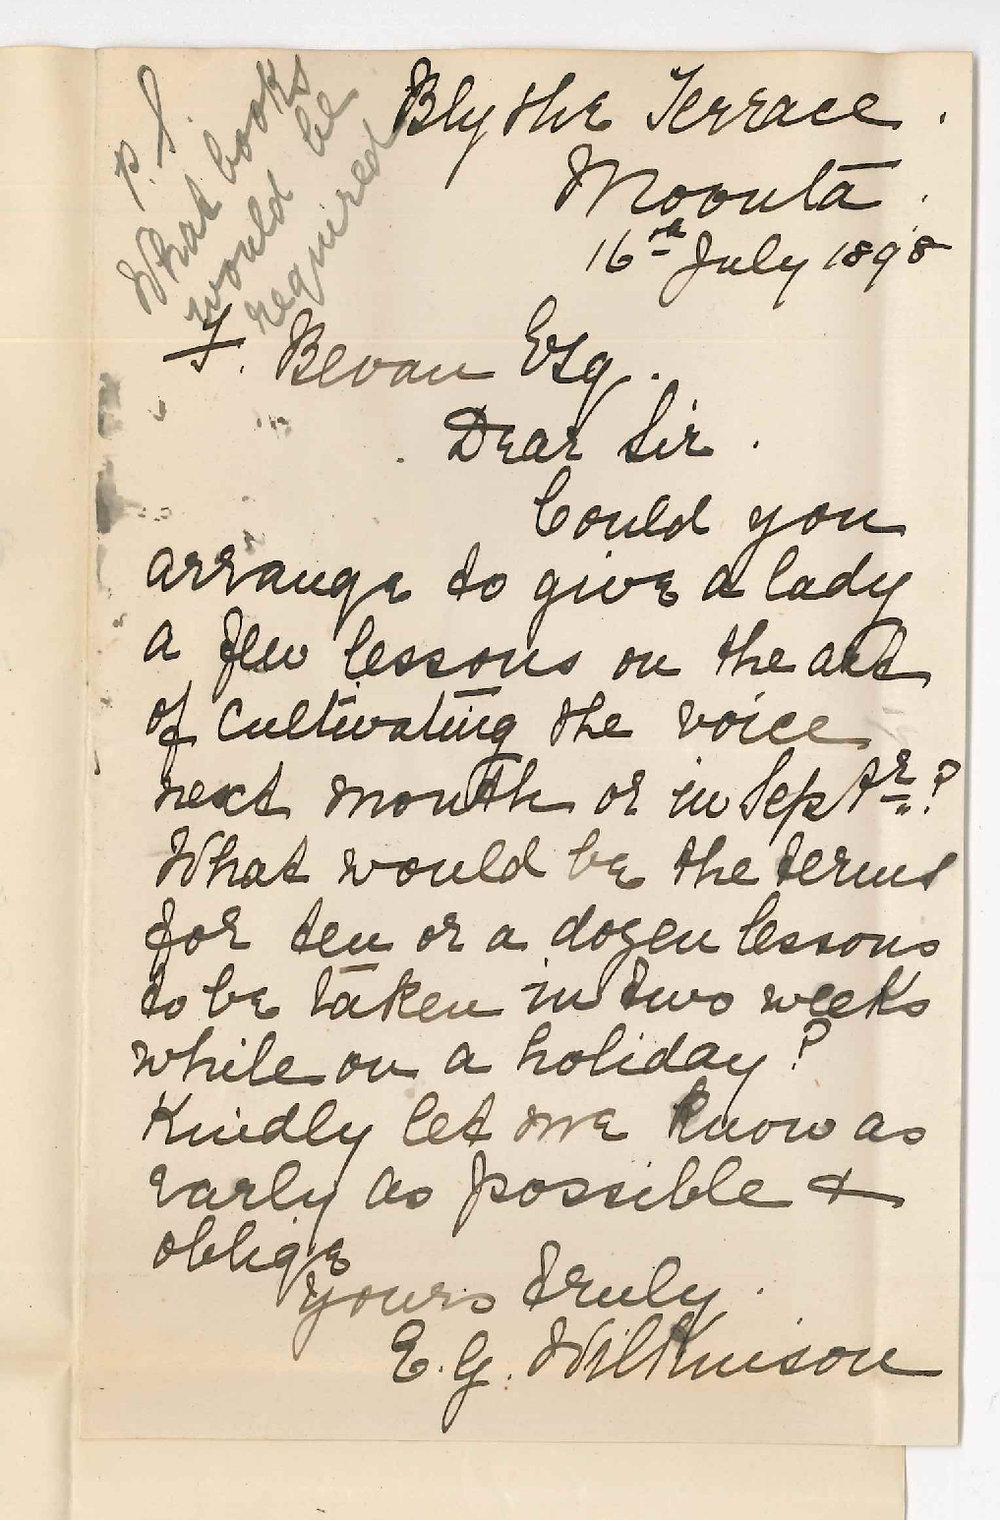 P.S.
What books
would be
required
Blythe Terrace.
Moonta.
16th July 1898
F. Bevan Esq.
Dear Sir.
Could you
arrange to give a lady
a few lessons on the art
of cultivating the voice
next month or in Septr.?
What would be the terms
for ten or a dozen lessons
to be taken in two weeks
while on a holiday?
Kindly let me know as
early as possible &
oblige
Yours truly.
E. G. Wilkinson